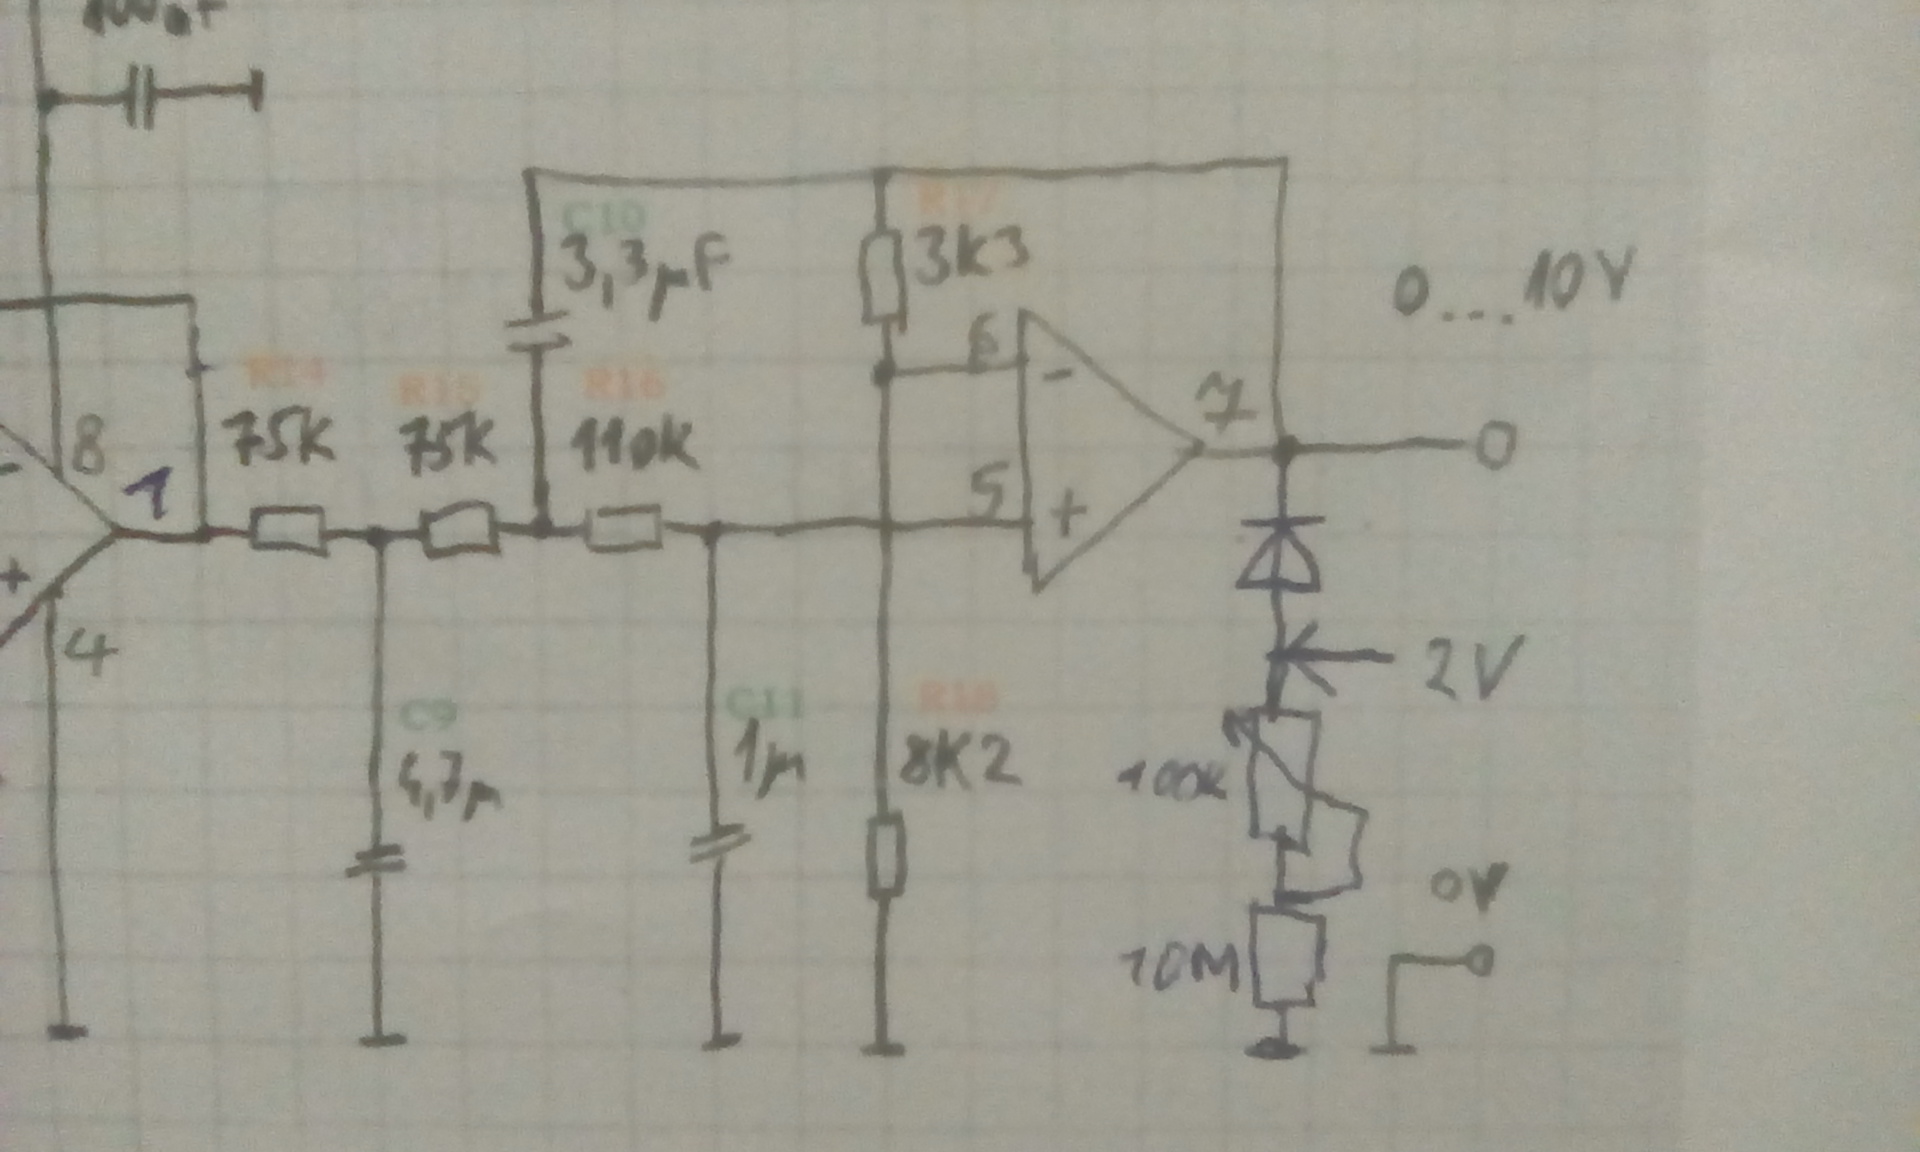 C10
3,3µF
R17
3K3
0...10V
6
-
7
R14
75K
R15
75K
R16
110K
8
1
-
5
+
+
4
2V
C9
4,7µ
C11
1µ
R18
8K2
100K
0V
10M